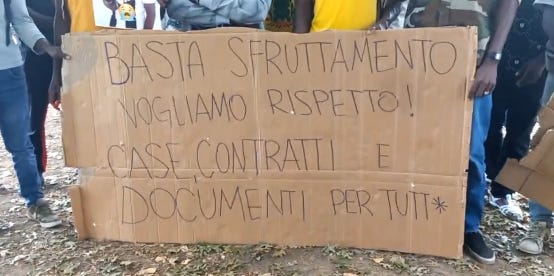 BASTA SFRUTTAMENTO
VOGLIAMO RISPETTO!
CASE, CONTRATTI E
DOCUMENTI PER TUTT*